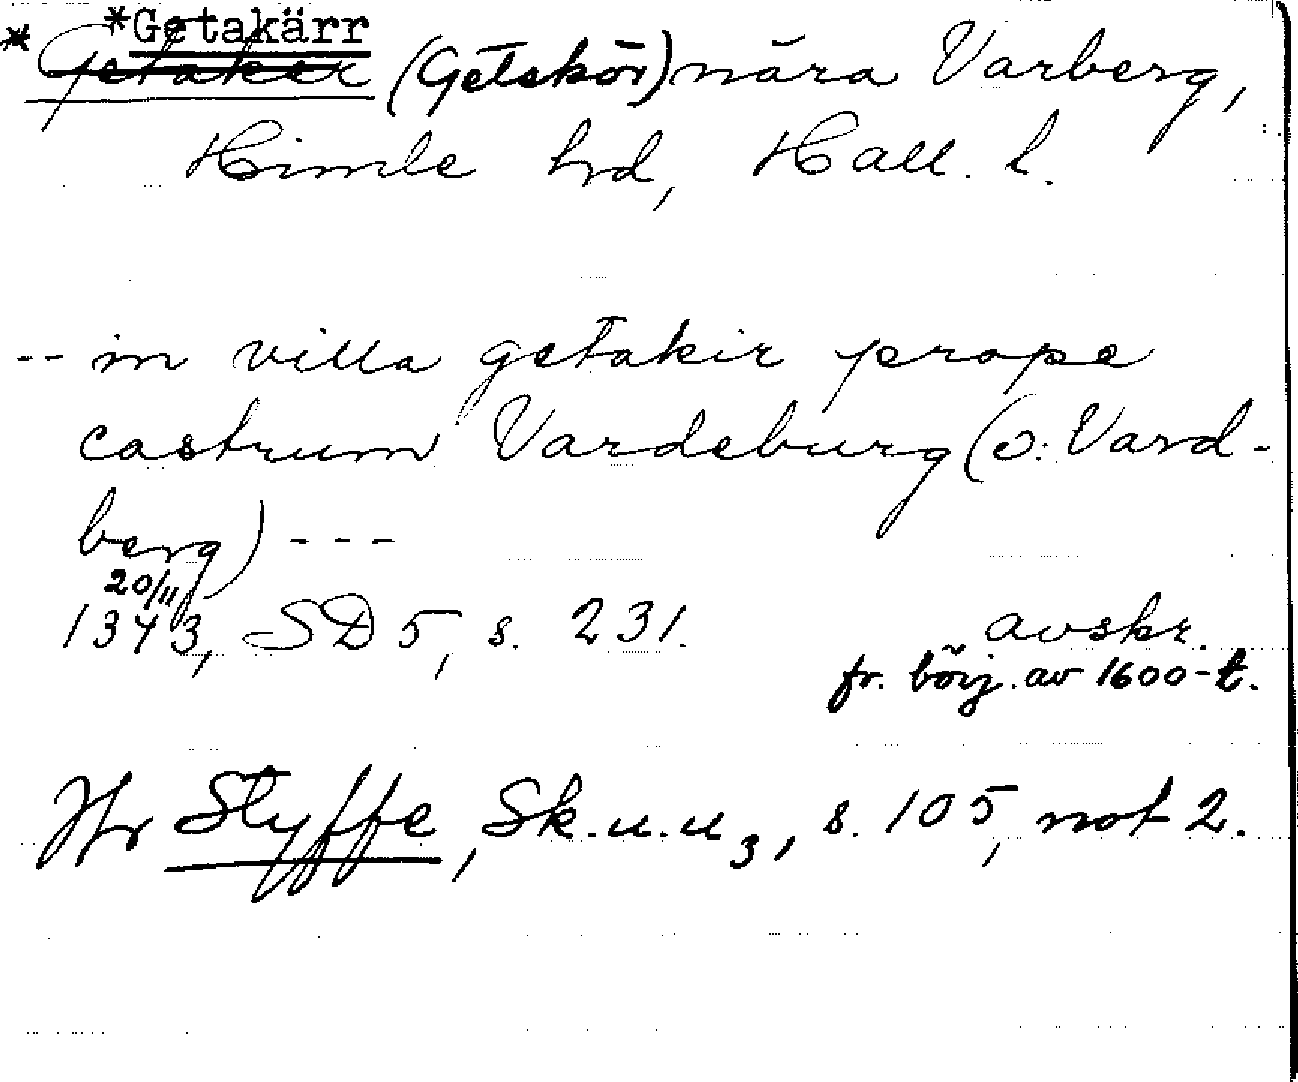 *Getakärr
* Getaker (Getskör) nära Varberg,
Himle hd, Hall. l.
-- in villa getakir prope
castrum Vardeburg (ɔ: Vard-
berg) ---
20/11
1343, SD 5, s. 231. avskr.
fr. börj. av 1600-t.
Jfr Styffe, Sk.u.u 3, s. 105, not 2.